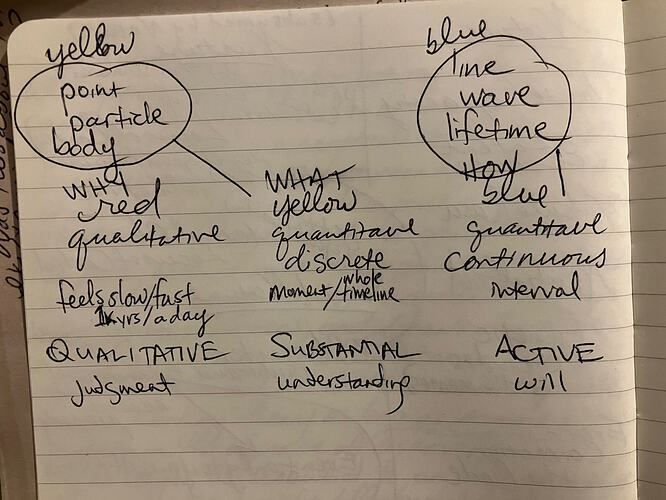 yellow
point
particle
body
blue
line
wave
lifetime
WHY WHAT HOW
red yellow blue
qualitative quantitave quantitave
discrete continuous
feels slow/fast moment/whole timeline interval
1k yrs/a day
QUALITATIVE SUBSTANTIAL ACTIVE
judgment understanding will